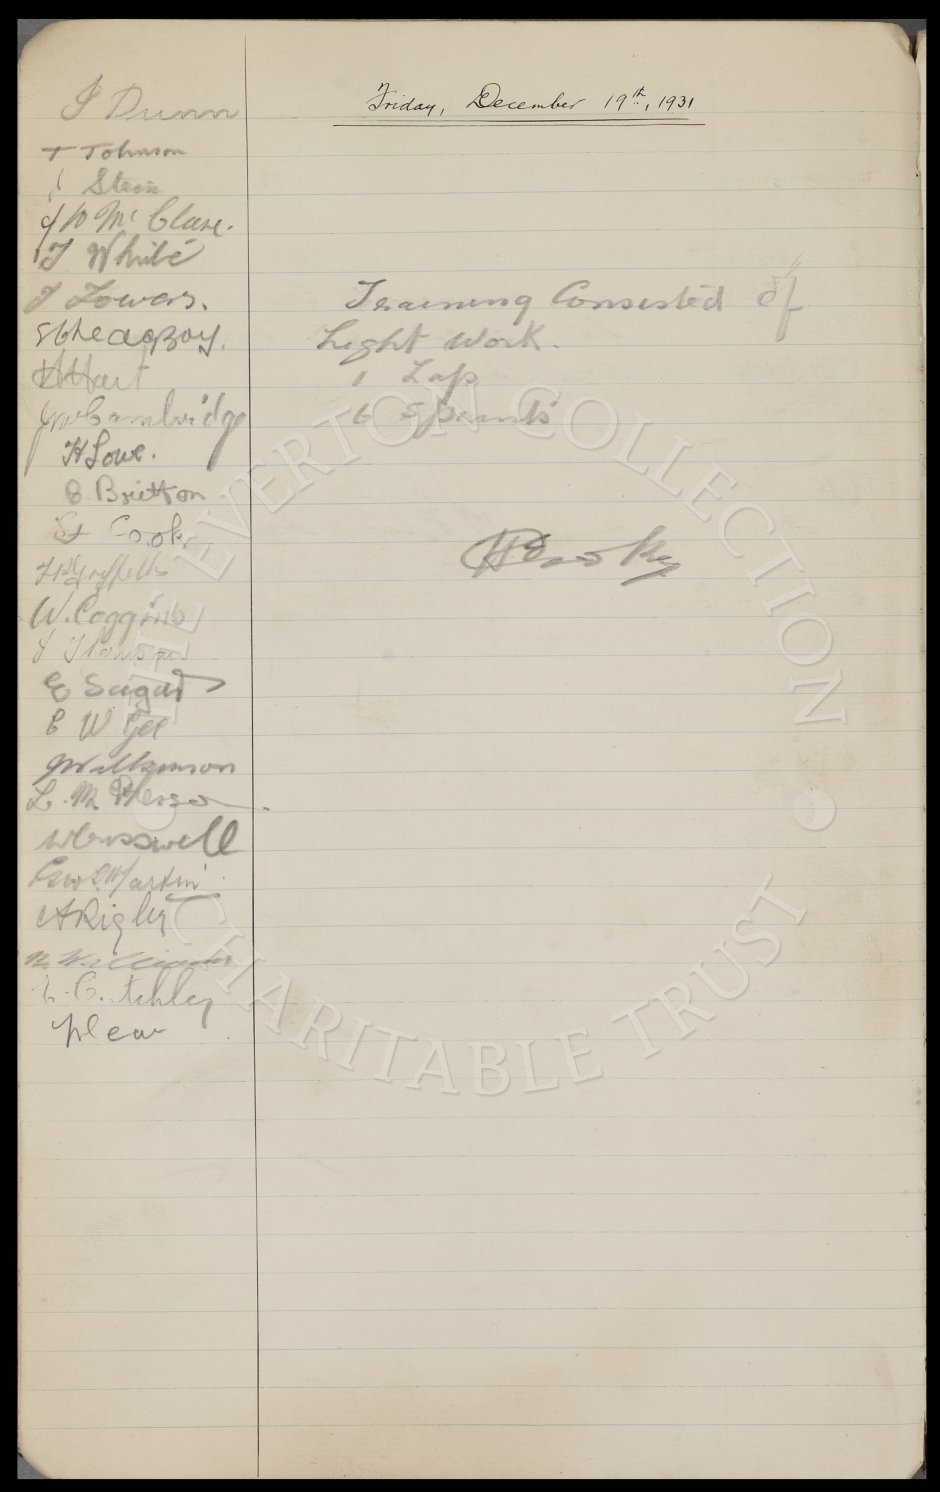 Friday, December 19th, 1931
J Dunn
T Johnson
J Stein
J W McClure.
T White
J Towers.
S Wheadboy.
H Hart
J W Cambridge
H Lowe.
C Britton
Cook
T P Griffiths
W. Coggins
J Thomson
E Sagar
C W Gee
J Wilkinson
L. McPherson
W Cresswell
Geo S. Martin
A Rigby
Williams
Archie Clark
Training Consisted of
Light Work.
1 Lap
6 Sprints
H E Cooke
THE EVERTON COLLECTION
CHARITABLE TRUST